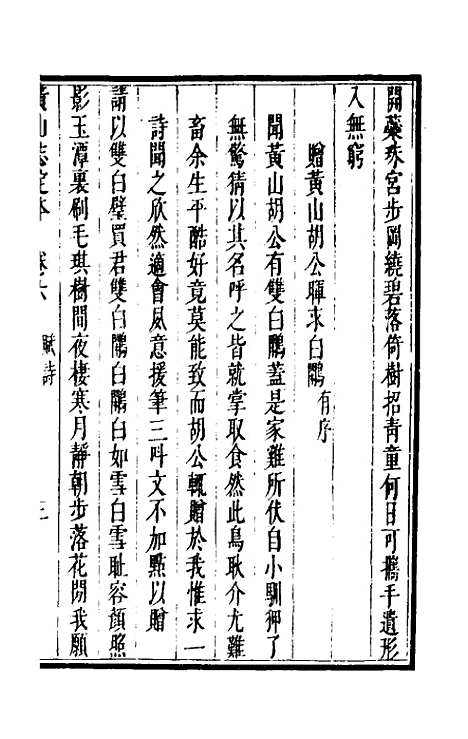 開蘂珠宮步岡繞碧落倚樹招青童何日可攜手遺形
入無窮
贈黃山胡公暉求白鷴有序
聞黃山胡公有雙白鷴蓋是家雞所伏自小馴狎了
無驚猜以其名呼之皆就掌取食然此鳥耿介尤難
畜余生平酷好竟莫能致而胡公輒贈於我惟求一
詩聞之欣然適會夙意援筆三呌文不加點以贈
請以雙白璧買君雙白鷴白鷴白如雪白雪耻容顏照
影玉潭裏刷毛琪樹間夜棲寒月靜朝步落花閒我願
黃山志定本 卷六 賦詩 三